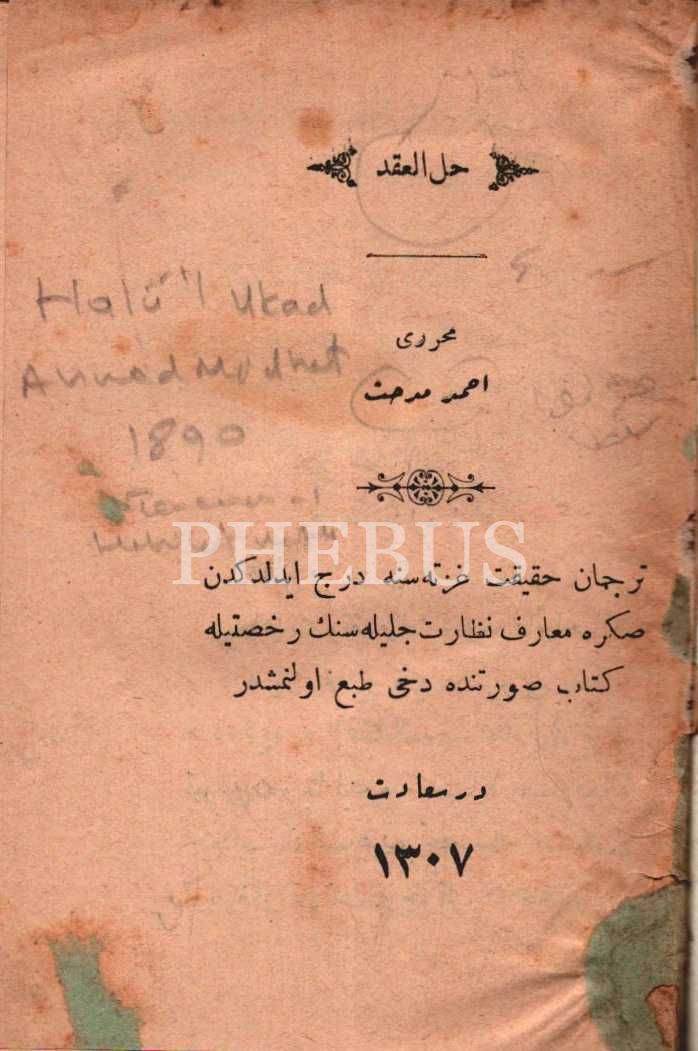 حل العقد
محرری
احمد مدحت
Halü'l Ukad
Ahmad Midhat
1890
PHEBUS
ترجمان حقیقت غزته‌سنه درج ایدلدکدن
صکره معارف نظارت جلیله‌سنك رخصتیله
کتاب صورتنده دخی طبع اولنمشدر
درسعادت
١٣٠٧